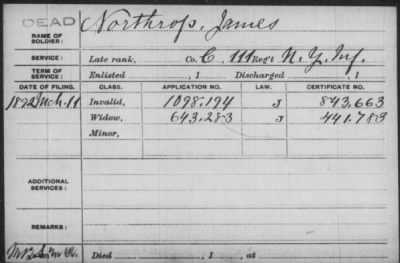 DEAD
Northrop, James
NAME OF SOLDIER:
SERVICE: Late rank, Co. C, 111 Reg't N.Y. Inf.
TERM OF SERVICE: Enlisted , 1 Discharged , 1
DATE OF FILING. CLASS. APPLICATION NO. LAW. CERTIFICATE NO.
Mch. 11 Invalid, 1098,194 J 843,663
Widow, 643,283 J 441,783
Minor,
ADDITIONAL SERVICES:
REMARKS:
Died , 1 , at